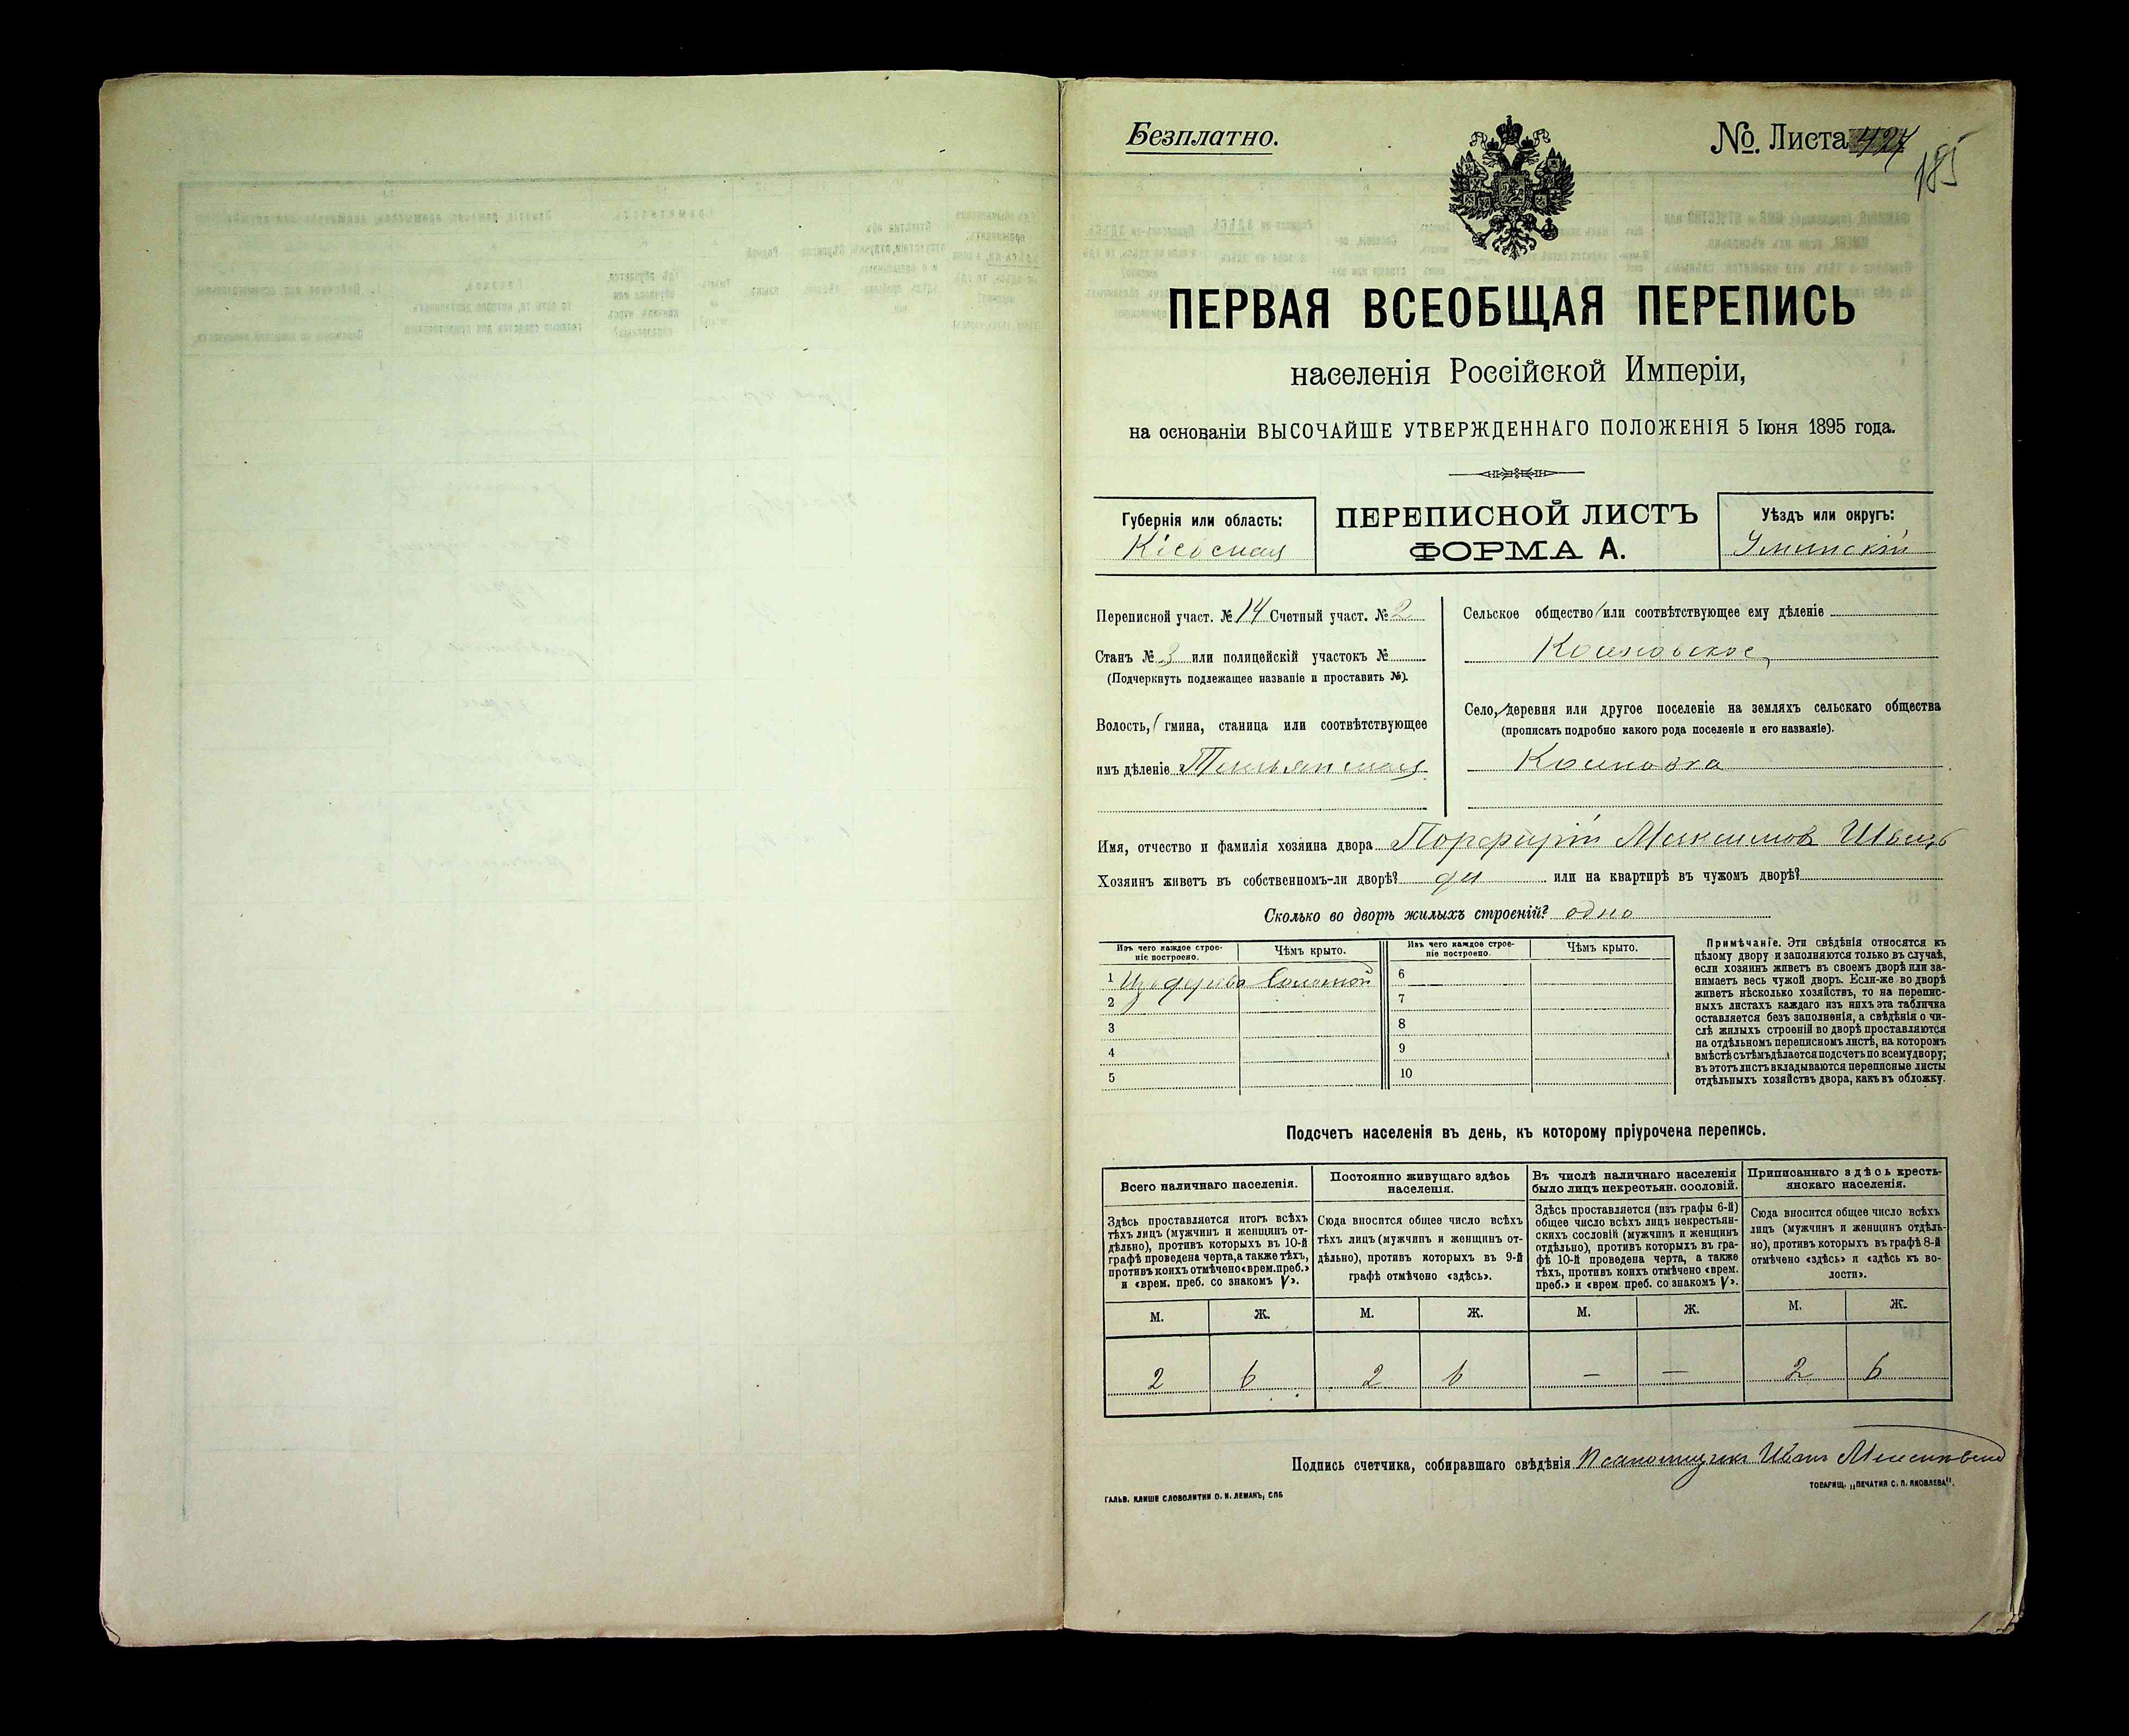 Безплатно.
№. Листа 427
185
ПЕРВАЯ ВСЕОБЩАЯ ПЕРЕПИСЬ
населенія Россійской Имперіи,
на основаніи ВЫСОЧАЙШЕ УТВЕРЖДЕННАГО ПОЛОЖЕНІЯ 5 Іюня 1895 года.
Губернія или область:
Кіевская
ПЕРЕПИСНОЙ ЛИСТЪ
ФОРМА А.
Уѣздъ или округъ:
Уманскій
Переписной участ. № 14 Счетный участ. № 2
Станъ № 3 или полицейскій участокъ №
(Подчеркнуть подлежащее названіе и проставить №).
Волость, гмина, станица или соотвѣтствующее
имъ дѣленіе
Сельское общество или соотвѣтствующее ему дѣленіе
Село, деревня или другое поселеніе на земляхъ сельскаго общества
(прописать подробно какого рода поселеніе и его названіе).
Имя, отчество и фамилія хозяина двора Порфирій Максимовъ Швецъ
Хозяинъ живетъ въ собственномъ-ли дворѣ? да или на квартирѣ въ чужомъ дворѣ?
Сколько во дворѣ жилыхъ строеній? одно
Изъ чего каждое строе-
ніе построено.
Чѣмъ крыто.
1 Изъ дерева Соломой
2
3
4
5
Изъ чего каждое строе-
ніе построено.
Чѣмъ крыто.
6
7
8
9
10
Примѣчаніе. Эти свѣдѣнія относятся къ
цѣлому двору и заполняются только въ случаѣ,
если хозяинъ живетъ въ своемъ дворѣ или за-
нимаетъ весь чужой дворъ. Если-же во дворѣ
живетъ нѣсколько хозяйствъ, то на перепис-
ныхъ листахъ каждаго изъ нихъ эта табличка
оставляется безъ заполненія, а свѣдѣнія о чи-
слѣ жилыхъ строеній во дворѣ проставляются
на отдѣльномъ переписномъ листѣ, на которомъ
вмѣстѣ съ тѣмъ дѣлается подсчетъ по всему двору;
въ этотъ листъ вкладываются переписные листы
отдѣльныхъ хозяйствъ двора, какъ въ обложку.
Подсчетъ населенія въ день, къ которому пріурочена перепись.
Всего наличнаго населенія.
Здѣсь проставляется итогъ всѣхъ
тѣхъ лицъ (мужчинъ и женщинъ от-
дѣльно), противъ которыхъ въ 10-й
графѣ проведена черта, а также тѣхъ,
противъ коихъ отмѣчено «врем. преб.»
и «врем. преб. со знакомъ V».
Постоянно живущаго здѣсь
населенія.
Сюда вносится общее число всѣхъ
тѣхъ лицъ (мужчинъ и женщинъ от-
дѣльно), противъ которыхъ въ 9-й
графѣ отмѣчено «здѣсь».
Въ числѣ наличнаго населенія
было лицъ некрестьян. сословій.
Здѣсь проставляется (изъ графы 6-й)
общее число всѣхъ лицъ некрестьян-
скихъ сословій (мужчинъ и женщинъ
отдѣльно), противъ которыхъ въ гра-
фѣ 10-й проведена черта, а также
тѣхъ, противъ коихъ отмѣчено «врем.
преб.» и «врем преб. со знакомъ V».
Приписаннаго здѣсь кресть-
янскаго населенія.
Сюда вносится общее число всѣхъ
лицъ (мужчинъ и женщинъ отдѣль-
но), противъ которыхъ въ графѣ 8-й
отмѣчено «здѣсь» и «здѣсь къ во-
лости».
М. Ж. М. Ж. М. Ж. М. Ж.
2 6 2 6 — — 2 6
Подпись счетчика, собиравшаго свѣдѣнія
ГАЛЬВ. КЛИШЕ СЛОВОЛИТНИ О. И. ЛЕМАНЪ, СПБ
ТОВАРИЩ. „ПЕЧАТНЯ С. П. ЯКОВЛЕВА".